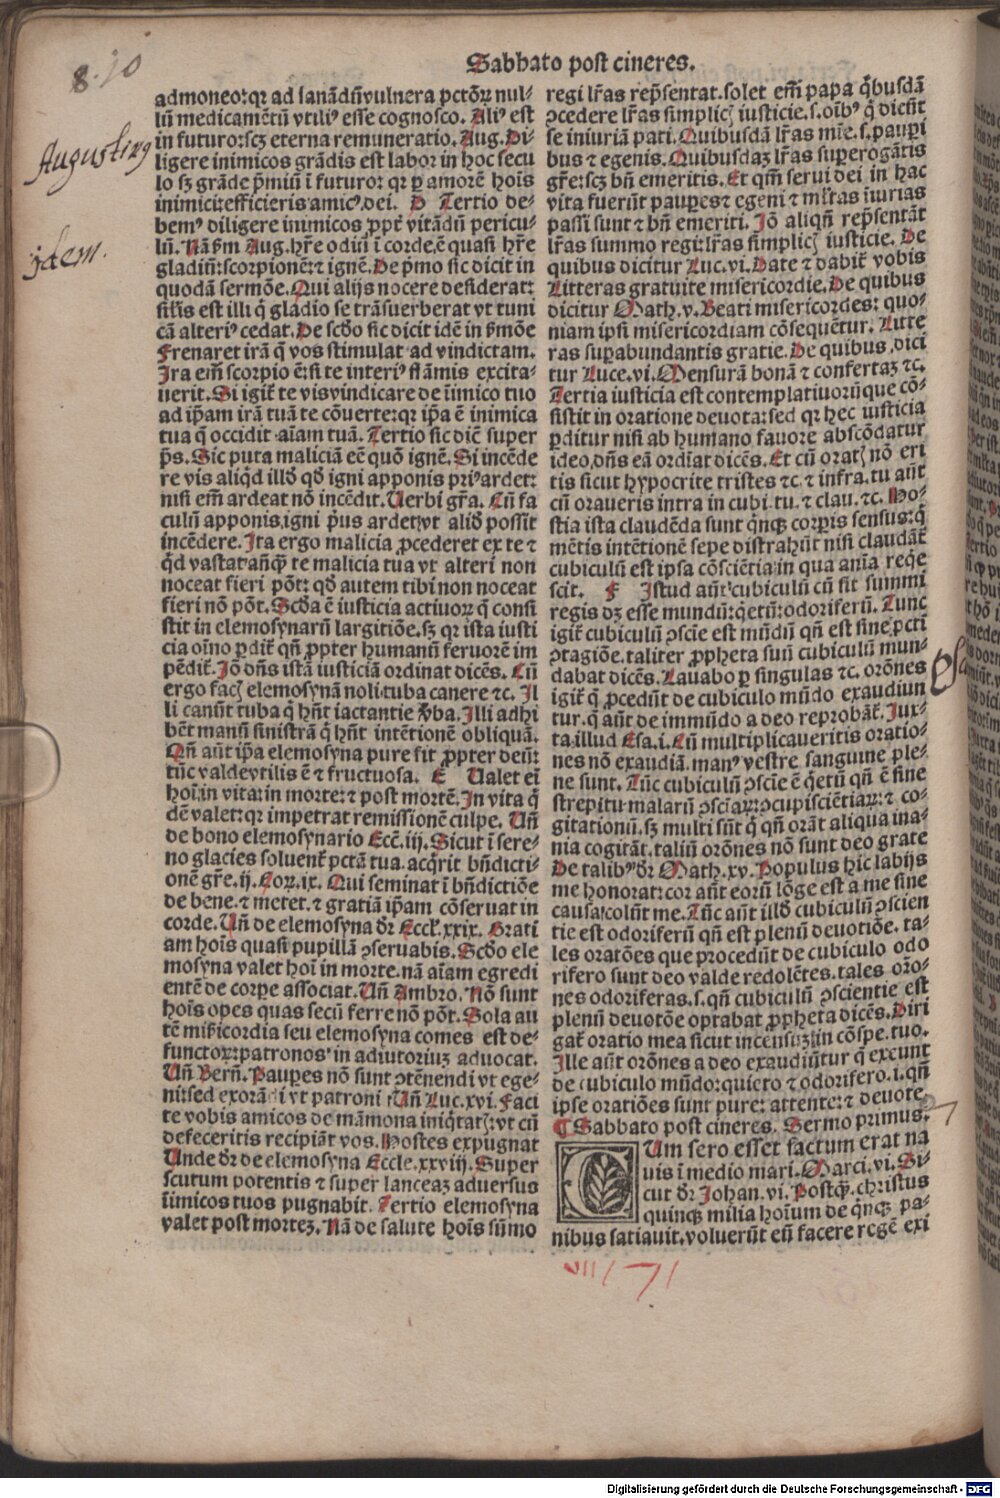 8·10
Sabbato post cineres.
Augustinꝰ
Jdem.
admoneo:qꝛ ad sanādū vulnera pctōꝝ nul-
lū medicamētū vtiliꝰ esse cognosco. Aliꝰ est
in futuro:scꝫ eterna remuneratio. Aug. Di-
ligere inimicos grādis est labor in hoc secu
lo sꝫ grāde p̄miū ī futuro: qꝛ ꝑ amorē hoīs
inimici:efficieris amicꝰ dei. D Tertio de-
bemꝰ diligere inimicos ꝓpt̄ vitādū pericu-
lū. Nā ẜm Aug. hr̄e odiū ī corde, ē quasi hr̄e
gladiū:scorpionē:⁊ ignē. De p̄mo sic dicit in
quodā sermōe. Qui alijs nocere desiderat:
sil̄is est illi q̄ gladio se trāsuerberat vt tuni
cā alteriꝰ cedat. De scd̄o sic dicit idē in ẜmōe
Frenaret irā q̄ vos stimulat ad vindictam.
Ira em̄ scorpio ē:si te interiꝰ flāmis excita-
uerit. Si igit̄ te vis vindicare de īimico tuo
ad ip̄am irā tuā te cōuerte:qꝛ ip̄a ē inimica
tua q̄ occidit aīam tuā. Tertio sic dic̄ super
p̄s. Sic puta maliciā eē quō ignē. Si incēde
re vis aliq̄d illd̄ qd̄ igni apponis priꝰ ardet:
nisi em̄ ardeat nō incēdit. Uerbi gr̄a. Cū fa
culū apponis igni p̄us ardet:vt aliд̄ possit
incēdere. Ita ergo malicia ꝓcederet ex te ⁊
q̄d vastat añqꝫ̄ te malicia tua vt alteri non
noceat fieri pōt: qd̄ autem tibi non noceat
fieri nō pōt. Scd̄a ē iusticia actiuoꝝ q̄ consi
stit in elemosynarū largitiōe. sꝫ qꝛ ista iusti
cia oīno ꝑdit̄ qn̄ ꝓpter humanū feruorē im
pēdit̄. Jō dn̄s istā iusticiā ordinat dicēs. Cū
ergo facꝭ elemosynā noli tuba canere ⁊c. Il
li canūt tuba q̄ hn̄t iactantie v̄ba. Illi adhi
bēt manū sinistrā q̄ hn̄t intētionē obliquā.
Qn̄ aūt ip̄a elemosyna pure fit ꝓpter deū:
tūc valde vtilis ē ⁊ fructuosa. E Ualet eī
hoī, in vita: in morte: ⁊ post mortē. In vita q̄
dē valet: qꝛ impetrat remissionē culpe. Un̄
de bono elemosynario Ecc̄. iij. Sicut ī sere-
no glacies soluent̄ pctā tua. acq̄rit bn̄dicti-
onē gr̄e. ij. Coꝝ. ix. Qui seminat ī bn̄dictiōe
de bene. ⁊ metet. ⁊ gratiā ip̄am cōseruat in
corde. Un̄ de elemosyna dr̄ Eccl̄. xxix. Grati
am hoīs quasi pupillā ꝯseruabis. Scd̄o ele
mosyna valet hoī in morte. nā aīam egredi
entē de corpe associat. Un̄ Ambro. Nō sunt
hoīs opes quas secū ferre nō pōt. Sola au
tē mīsicordia seu elemosyna comes est de-
functoꝝ: patronos in adiutoriuꝫ aduocat.
Un̄ Bern̄. Paupes nō sunt ꝯtēnendi vt ege-
ni: sed exorādi vt patroni Un̄ Luc. xvi. Faci
te vobis amicos de māmona iniq̄tatꝭ: vt cū
defeceritis recipiāt vos. Hostes expugnat
Unde dr̄ de elemosyna Eccle. xxviij. Super
scutum potentis ⁊ super lanceaꝫ aduersus
īimicos tuos pugnabit. Tertio elemosyna
valet post morteꝫ. Nā de salute hoīs sūmo
regi lr̄as rep̄sentat. solet em̄ papa q̄busdā
ꝯcedere lr̄as simplicꝭ iusticie. s. oībꝰ q̄ dicūt
se iniuriā pati. Quibusdā lr̄as mīe. s. pauꝑi
bus ⁊ egenis. Quibusdaꝫ lr̄as suꝑerogātis
gr̄e: scꝫ bn̄ emeritis. Et qm̄ serui dei in hac
vita fuerūt pauꝑes ⁊ egeni ⁊ mlt̄as iīurias
passi sunt ⁊ bn̄ emeriti. Jō aliqn̄ rep̄sentāt
lr̄as summo regi: lr̄as simplicꝭ iusticie. De
quibus dicitur Luc. vi. Date ⁊ dabit̄ vobis
Litteras gratuite misericordie. De quibus
dicitur Math. v. Beati misericordes: quo-
niam ipsi misericordiam cōsequētur. Litte
ras suꝑabundantis gratie. De quibus dici
tur Luce. vi. Mensurā bonā ⁊ confertaꝫ ⁊c.
Tertia iusticia est contemplatiuorū que cō-
sistit in oratione deuota: sed qꝛ hec iusticia
ꝑditur nisi ab humano fauore abscōdatur
ideo dn̄s eā ordīat dicēs. Et cū oratꝭ nō eri
tis sicut hypocrite tristes ⁊c. ⁊ infra. tu aūt
cū oraueris intra in cubi. tu. ⁊ clau. ⁊c. Ho-
stia ista claudēda sunt q̄nqꝫ corꝑis sensus: q̄
mētis intētionē sepe distrahūt nisi claudāt̄
cubiculū est ipsa cōsciētia in qua anīa req̄e
scit. F Istud aūt cubiculū cū sit summi
regis dꝫ esse mundū: q̄etū: odoriferū. Tunc
igit̄ cubiculū ꝯscie est mūdū qn̄ est sine pcti
ꝯtagiōe. taliter ꝓpheta suū cubiculū mun-
dabat dicēs. Lauabo ꝑ singulas ⁊c. orōnes
igit̄ q̄ ꝓcedūt de cubiculo mūdo exaudiun
tur. q̄ aūt de immūdo a deo reprobāt̄. Jux-
ta illud Esa. i. Cū multiplicaueritis oratio-
nes nō exaudiā. manꝰ vestre sanguine ple-
ne sunt. Tūc cubiculū ꝯscīe ē q̄etū qn̄ ē sine
strepitu malarū ꝯsciaꝝ: ꝯcupisciētiaꝝ: ⁊ co-
gitationū. sꝫ multi sūt q̄ qn̄ orāt aliqua ina-
nia cogitāt. taliū orōnes nō sunt deo grate
De talibꝰ dr̄ Math. xv. Populus hic labijs
me honorat: cor aūt eorū lōge est a me sine
causa: colūt me. Tūc aūt illd̄ cubiculū ꝯscien
tie est odoriferū qn̄ est plenū deuotiōe. ta-
les oratōes que procedūt de cubiculo odo
rifero sunt deo valde redolētes. tales orō-
nes odoriferas. s. qn̄ cubiculū ꝯscientie est
plenū deuotōe optabat ꝓpheta dicēs. Diri
gat̄ oratio mea sicut incensuꝫ in cōspe. tuo.
Ille aūt orōnes a deo exaudiūtur q̄ exeunt
de cubiculo mūdo: quieto ⁊ odorifero. i. qn̄
ipse oratiōes sunt pure: attente: ⁊ deuote.
¶ Sabbato post cineres. Sermo primus.
CUm sero esset factum erat na
uis ī medio mari. Marci. vi. Si-
cut dr̄ Johan. vi. Postqꝫ̄. christus
quinqꝫ milia hoīum de q̄nqꝫ pa-
nibus satiauit. voluerūt eū facere regē exi
Digitalisierung gefördert durch die Deutsche Forschungsgemeinschaft - DFG